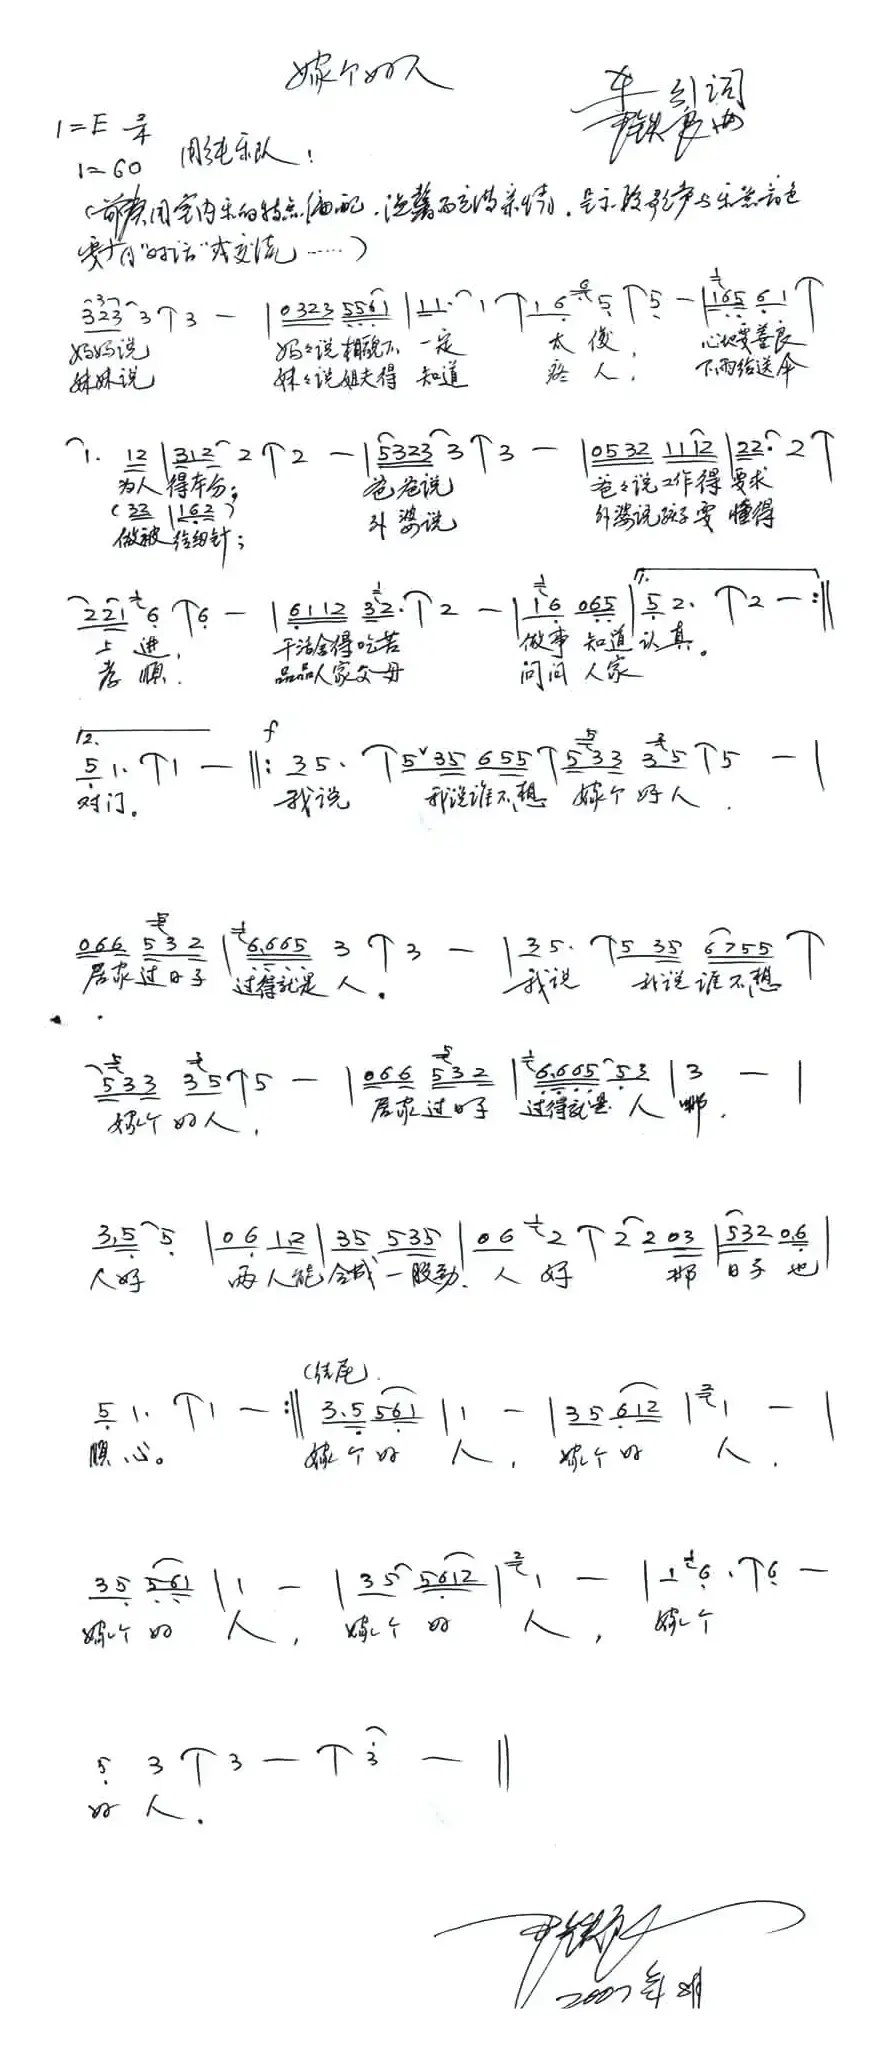 嫁个好人
车 行词
曲
1=E 2/4
1=60 用纯乐队！
(前奏用室内乐的特点编配，
要有“对话”或交流……)
323 3 3 — | 0323 5561 | 11· 1 16 5 5 — | 165 61
妈妈说 妈妈说相貌不一定 太俊， 心地要善良
妹妹说 妹妹说姐夫得知道 疼人， 下雨给送伞
1· 12 | 312 2 2 — | 5323 3 3 — | 0532 1112 | 22· 2
为人得本分； 爸爸说 爸爸说工作得要求
(32 | 162)
做被给纫针； 外婆说 外婆说孩子要懂得
221 6 6 — | 6112 32· 2 — | 16 065 | 5 2· 2 — :‖
上进， 干活舍得吃苦 做事知道认真。
孝顺． 品品人家父母 问问人家
5 1· 1 — ‖: 35· 5 35 655 533 35 5 — |
对门。 我说 我说谁不想 嫁个好人．
f
066 532 | 6.665 3 3 — | 35· 5 35 6755
居家过日子 过得就是人． 我说 我说谁不想
533 35 5 — | 066 532 | 6.665 53 | 3 — |
嫁个好人， 居家过日子 过得就是人 哪．
3.5 5 | 06 1.2 | 35 535 | 06 2 2 203 | 532 0.6 |
人好 两人能合成一股劲． 人好 那日子也
(结尾)
5 1· 1 — :‖ 3.5 561 | 1 — | 35 612 | 1 — |
顺心。 嫁个好人， 嫁个好人．
35 561 | 1 — | 35 5612 | 1 — | 1 6· 6 —
嫁个好人， 嫁个好人， 嫁个
5 3 3 — 3 — ‖
好人．
2007年